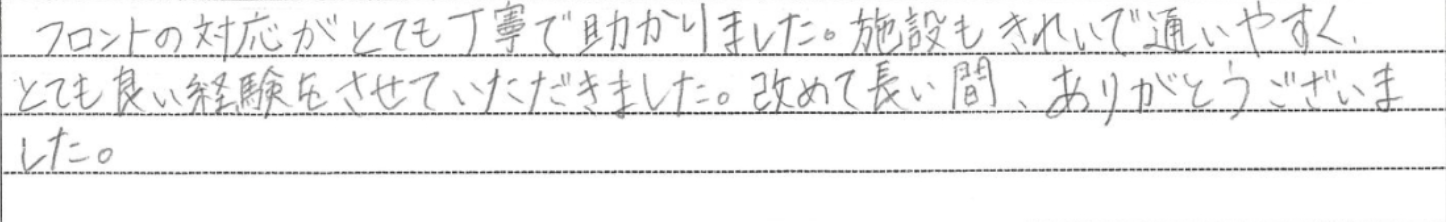 フロントの対応がとても丁寧で助かりました。施設もきれいで通いやすく、
とても良い経験をさせていただきました。改めて長い間、ありがとうございま
した。